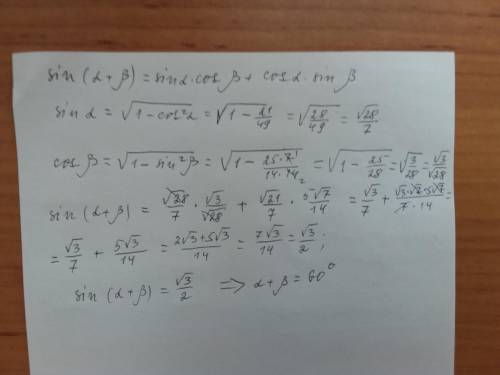 sin (α+β) = sinα·cos β + cosα·sin β
sin α = √(1-cos²α) = √(1 - 21/49) = √(28/49) = √28/7
cos β = √(1-sin²β) = √(1 - 25·7/14·14) = √(1 - 25/28) = √(3/28) = √3/√28
sin (α+β) = √28/7 · √3/√28 + √21/7 · 5√7/14 = √3/7 + √3·√7·5√7/7·14 =
= √3/7 + 5√3/14 = 2√3+5√3/14 = 7√3/14 = √3/2 ;
sin (α+β) = √3/2 ⟹ α+β = 60°